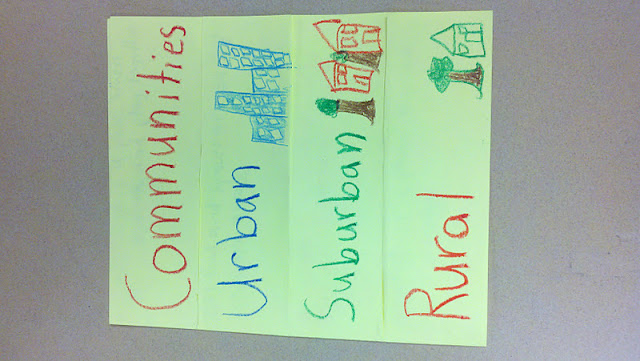 Communities
Urban
Suburban
Rural